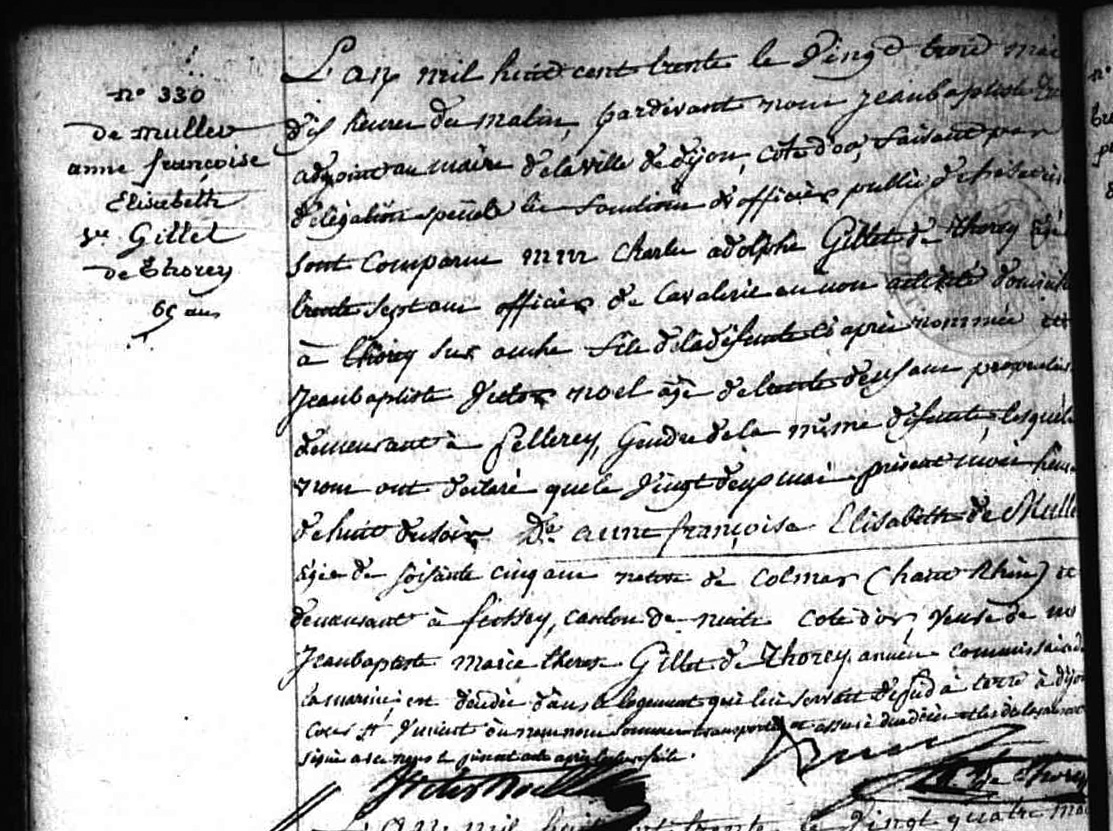 n° 330
de muller
anne françoise
Elisabeth
Ve Gillet
de Thorey
65 ans
L'an mil huit cent trente le vingt trois mai
dix heures du matin, pardevant nous jean baptiste
adjoint au maire de la ville de dijon, côte d'or, faisant par
délégation spéciale les fonctions d'officier public de l'état civil
sont comparus mrs Charles adolphe Gillet de Thorey âgé
trente sept ans officier de Cavalerie en non activité domicilié
à thorey sur ouche fils de la défunte ci après nommée et
jean baptiste victor noel âgé de trente deux ans propriétaire
demeurant à pellerey, Gendre de la même défunte, lesquels
nous ont déclaré que le vingt deux mai présent mois heure
de huit du soir De anne françoise Elisabeth de Mulle
âgée de soixante cinq ans native de Colmar (haut Rhin) et
demeurant à flossey, canton de nuits cote d'or, veuve de
jean baptiste marie therese Gillet de Thorey, ancien commissaire de
la marine, est décédée dans le logement qui lui servait de pied à terre à dijon
cour où nous nous sommes transporté et assuré du décès et les déclarants
signé avec nous le présent acte après lecture faite.
Victor Noel
de thorey
L'an mil huit cent trente, le vingt quatre mai